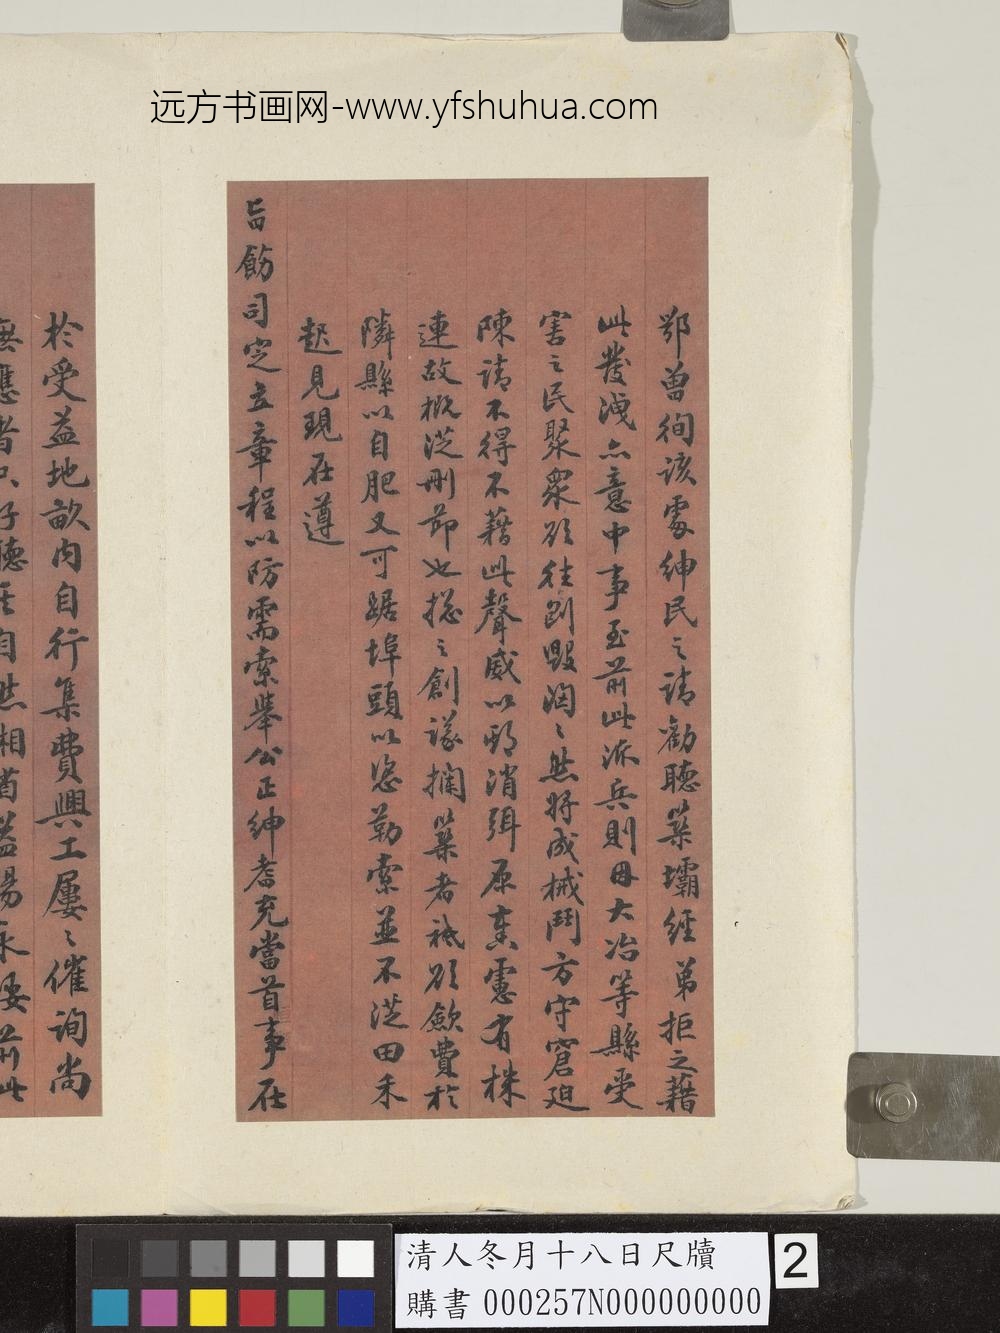 远方书画网-www.yfshuhua.com
鄂曾徇該處紳民之請勸聽築壩經弟拒之藉
此發洩亦意中事至前此派兵則因大冶等縣受
害之民聚眾欲往剷毀洶〻然將成械鬥方守窘迫
陳請不得不藉此聲威以期消弭原奏慮有株
連故概從刪節也總之創議攔築者祇欲斂費於
隣縣以自肥又可踞埠頭以恣勒索並不從田禾
起見現在遵
旨飭司定立章程以防需索舉公正紳耆充當首事在
於受益地畝內自行集費興工屢〻催詢尚
無應者只好聽其自然湘省益陽
前此
清人冬月十八日尺牘
購書 000257N000000000
2